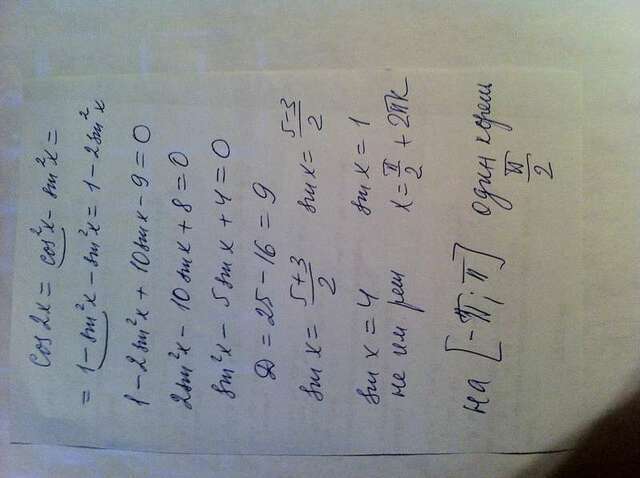 cos2x = cos²x - sin²x =
= 1 - sin²x - sin²x = 1 - 2sin²x
1 - 2sin²x + 10sinx - 9 = 0
2sin²x - 10sinx + 8 = 0
sin²x - 5sinx + 4 = 0
D = 25 - 16 = 9
sinx = (5+3)/2 sinx = (5-3)/2
sinx = 4 sinx = 1
не им реш x = π/2 + 2πk
на [-π; π] один корень π/2